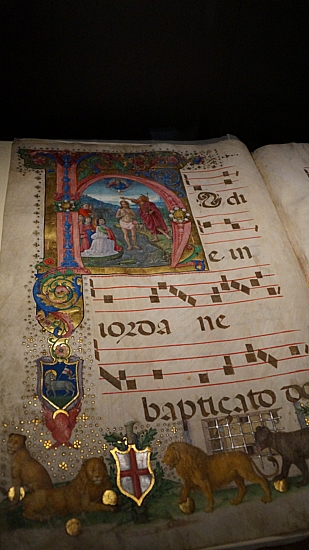 H di
e in
iorda ne
baptizato do